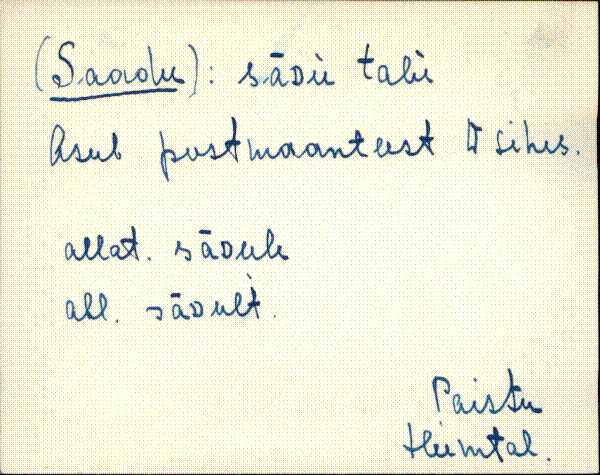 (Saadu): sāᴅu talu
Asub postmaanteest W sihis.
allat. sāᴅulle
abl. sāᴅult̀.
Paistu
Heimtal.